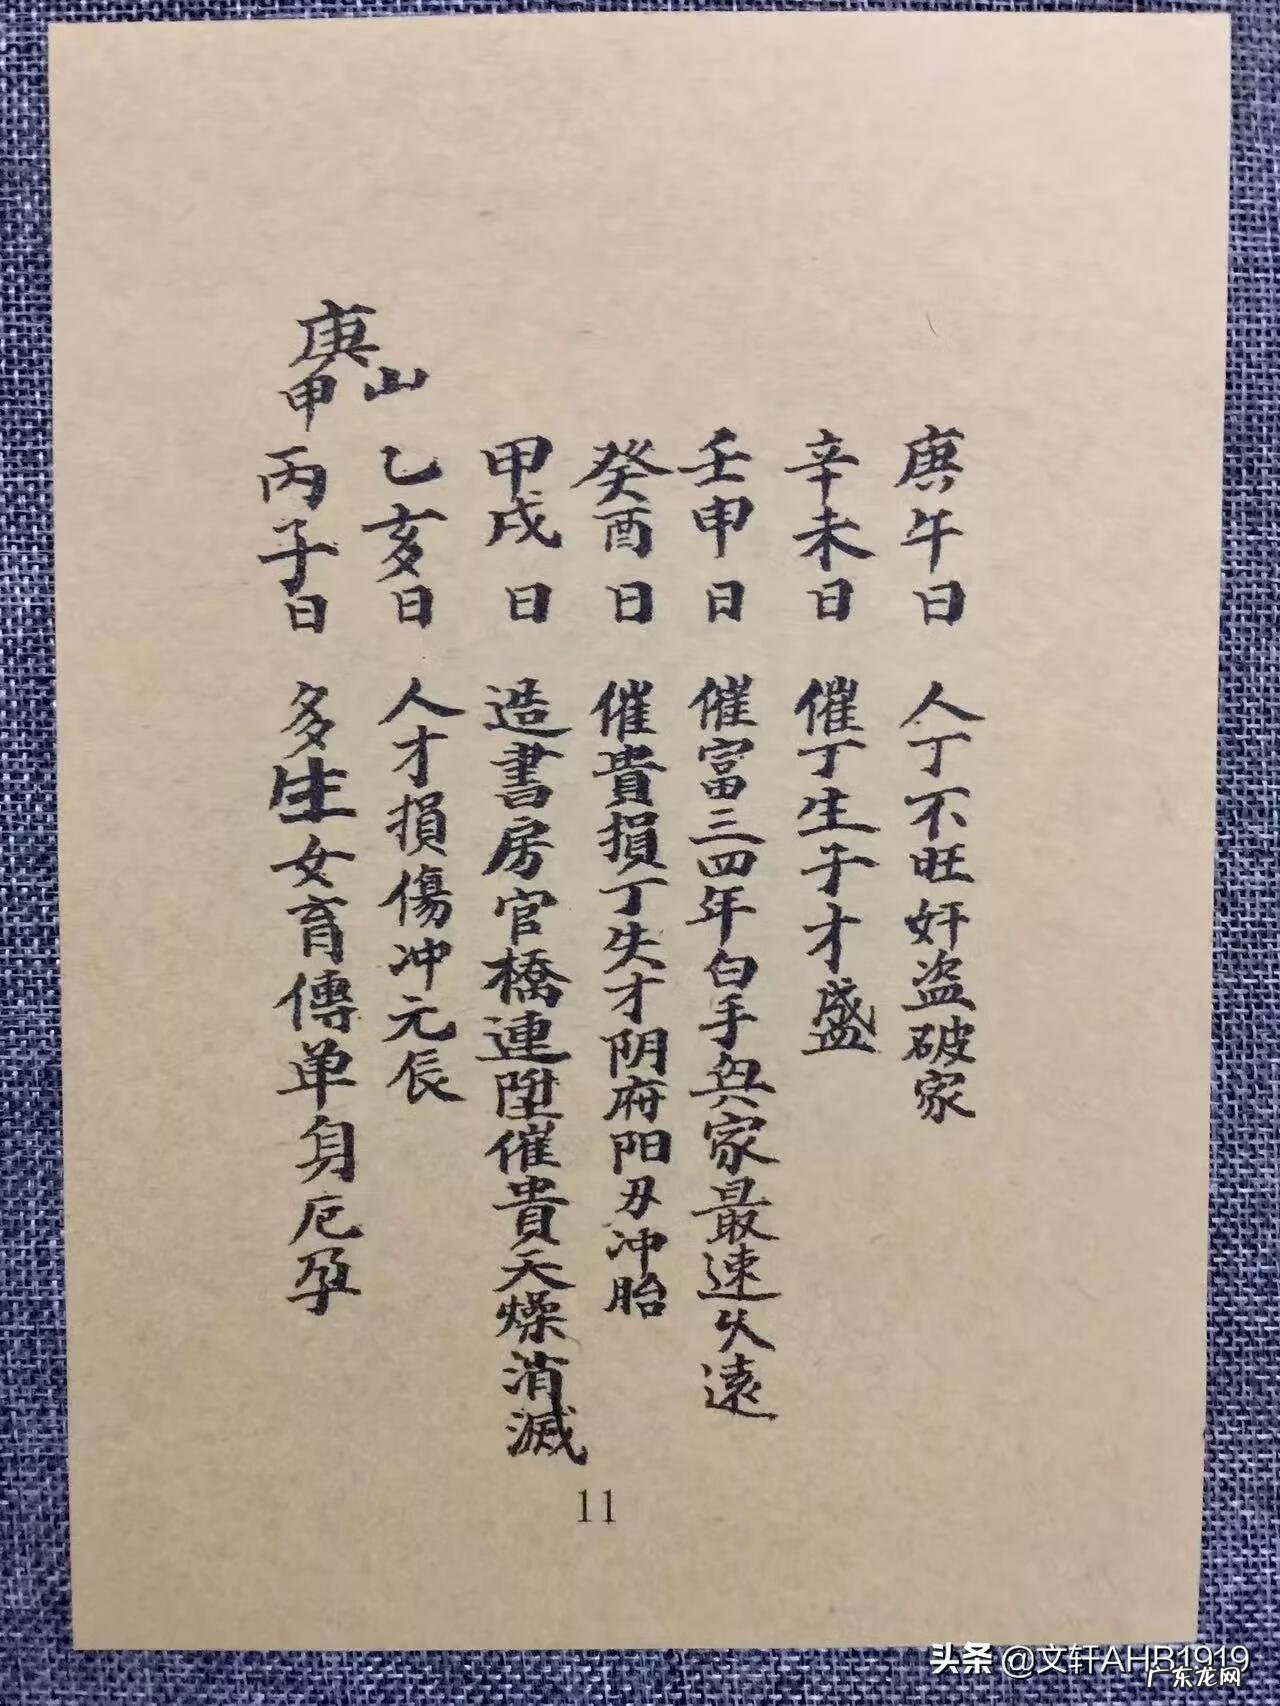 庚午日 人丁不旺奸盗破家
辛未日 催丁生子才盛
壬申日 催富三四年白手興家最速久遠
癸酉日 催貴損丁失才阴府阳刃冲胎
甲戌日 造書房官橋連陞催貴天燥消滅
乙亥日 人才損傷冲元辰
庚甲山
丙子日 多生女育傳单身厄孕
11
头条 @文轩AHB1919
广东龙网